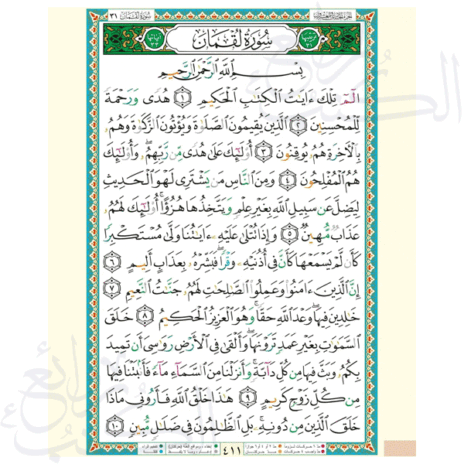 سُورَةُ لُقْمَان ٣١
سُورَةُ لُقْمَانَ
بِسْمِ اللَّهِ الرَّحْمَٰنِ الرَّحِيمِ
الٓمٓ تِلْكَ ءَايَٰتُ الْكِتَٰبِ الْحَكِيمِ ١ هُدًى وَرَحْمَةً
لِّلْمُحْسِنِينَ ٢ الَّذِينَ يُقِيمُونَ الصَّلَوٰةَ وَيُؤْتُونَ الزَّكَوٰةَ وَهُم
بِالْأَخِرَةِ هُمْ يُوقِنُونَ ٣ أُو۟لَٰٓئِكَ عَلَىٰ هُدًى مِّن رَّبِّهِمْ وَأُو۟لَٰٓئِكَ
هُمُ الْمُفْلِحُونَ ٤ وَمِنَ النَّاسِ مَن يَشْتَرِى لَهْوَ الْحَدِيثِ
لِيُضِلَّ عَن سَبِيلِ اللَّهِ بِغَيْرِ عِلْمٍ وَيَتَّخِذَهَا هُزُوًا أُو۟لَٰٓئِكَ لَهُمْ
عَذَابٌ مُّهِينٌ ٥ وَإِذَا تُتْلَىٰ عَلَيْهِ ءَايَٰتُنَا وَلَّىٰ مُسْتَكْبِرًا
كَأَن لَّمْ يَسْمَعْهَا كَأَنَّ فِىٓ أُذُنَيْهِ وَقْرًا فَبَشِّرْهُ بِعَذَابٍ أَلِيمٍ ٦
إِنَّ الَّذِينَ ءَامَنُوا۟ وَعَمِلُوا۟ الصَّٰلِحَٰتِ لَهُمْ جَنَّٰتُ النَّعِيمِ ٧
خَٰلِدِينَ فِيهَا وَعْدَ اللَّهِ حَقًّا وَهُوَ الْعَزِيزُ الْحَكِيمُ ٨ خَلَقَ
السَّمَٰوَٰتِ بِغَيْرِ عَمَدٍ تَرَوْنَهَا وَأَلْقَىٰ فِى الْأَرْضِ رَوَٰسِىَ أَن تَمِيدَ
بِكُمْ وَبَثَّ فِيهَا مِن كُلِّ دَآبَّةٍ وَأَنزَلْنَا مِنَ السَّمَآءِ مَآءً فَأَنۢبَتْنَا فِيهَا
مِن كُلِّ زَوْجٍ كَرِيمٍ ٩ هَٰذَا خَلْقُ اللَّهِ فَأَرُونِى مَاذَا
خَلَقَ الَّذِينَ مِن دُونِهِۦ بَلِ الظَّٰلِمُونَ فِى ضَلَٰلٍ مُّبِينٍ ١٠
٤١١